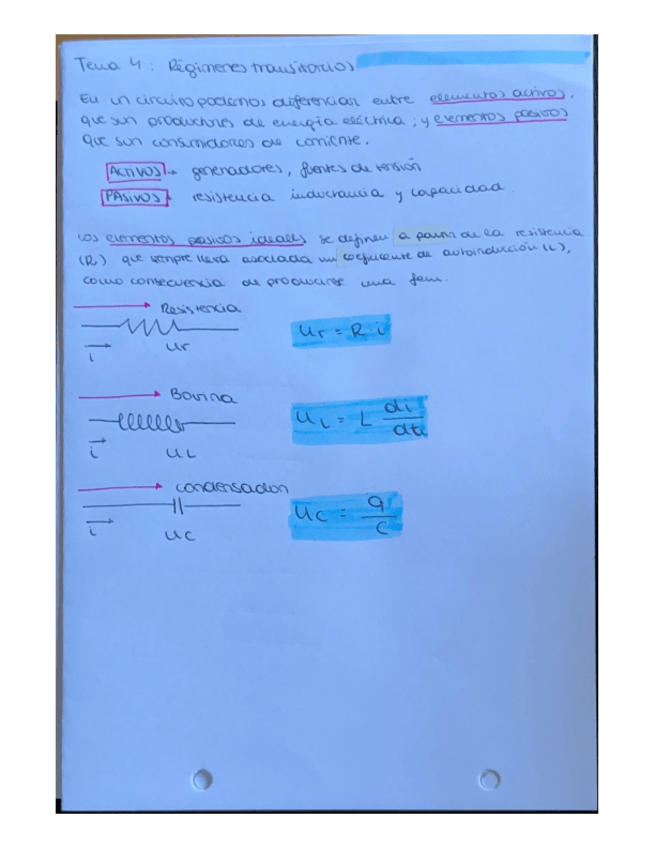 Tema 4: Régimenes transitorios
En un circuito podemos diferenciar entre elementos activos,
que son productores de energía eléctrica; y elementos pasivos
que son consumidores de corriente.
ACTIVOS → generadores, fuentes de tensión
PASIVOS → resistencia inductancia y capacidad.
Los elementos pasivos ideales se definen a partir de la resistencia
(R) que siempre lleva asociada un coeficiente de autoinducción (L),
como consecuencia de producirse una fem.
Resistencia
i ur
ur = R i
Bovina
i uL
uL = L di/dt
condensador
i uc
uc = q/c